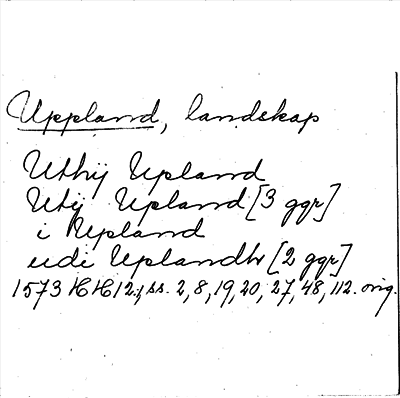 Uppland, landskap
Uthij Upland
Utij Upland [3 ggr]
i Upland
udi Uplandh [2 ggr]
1573 HH 12:, ss. 2, 8, 19, 20, 27, 48, 112. orig.